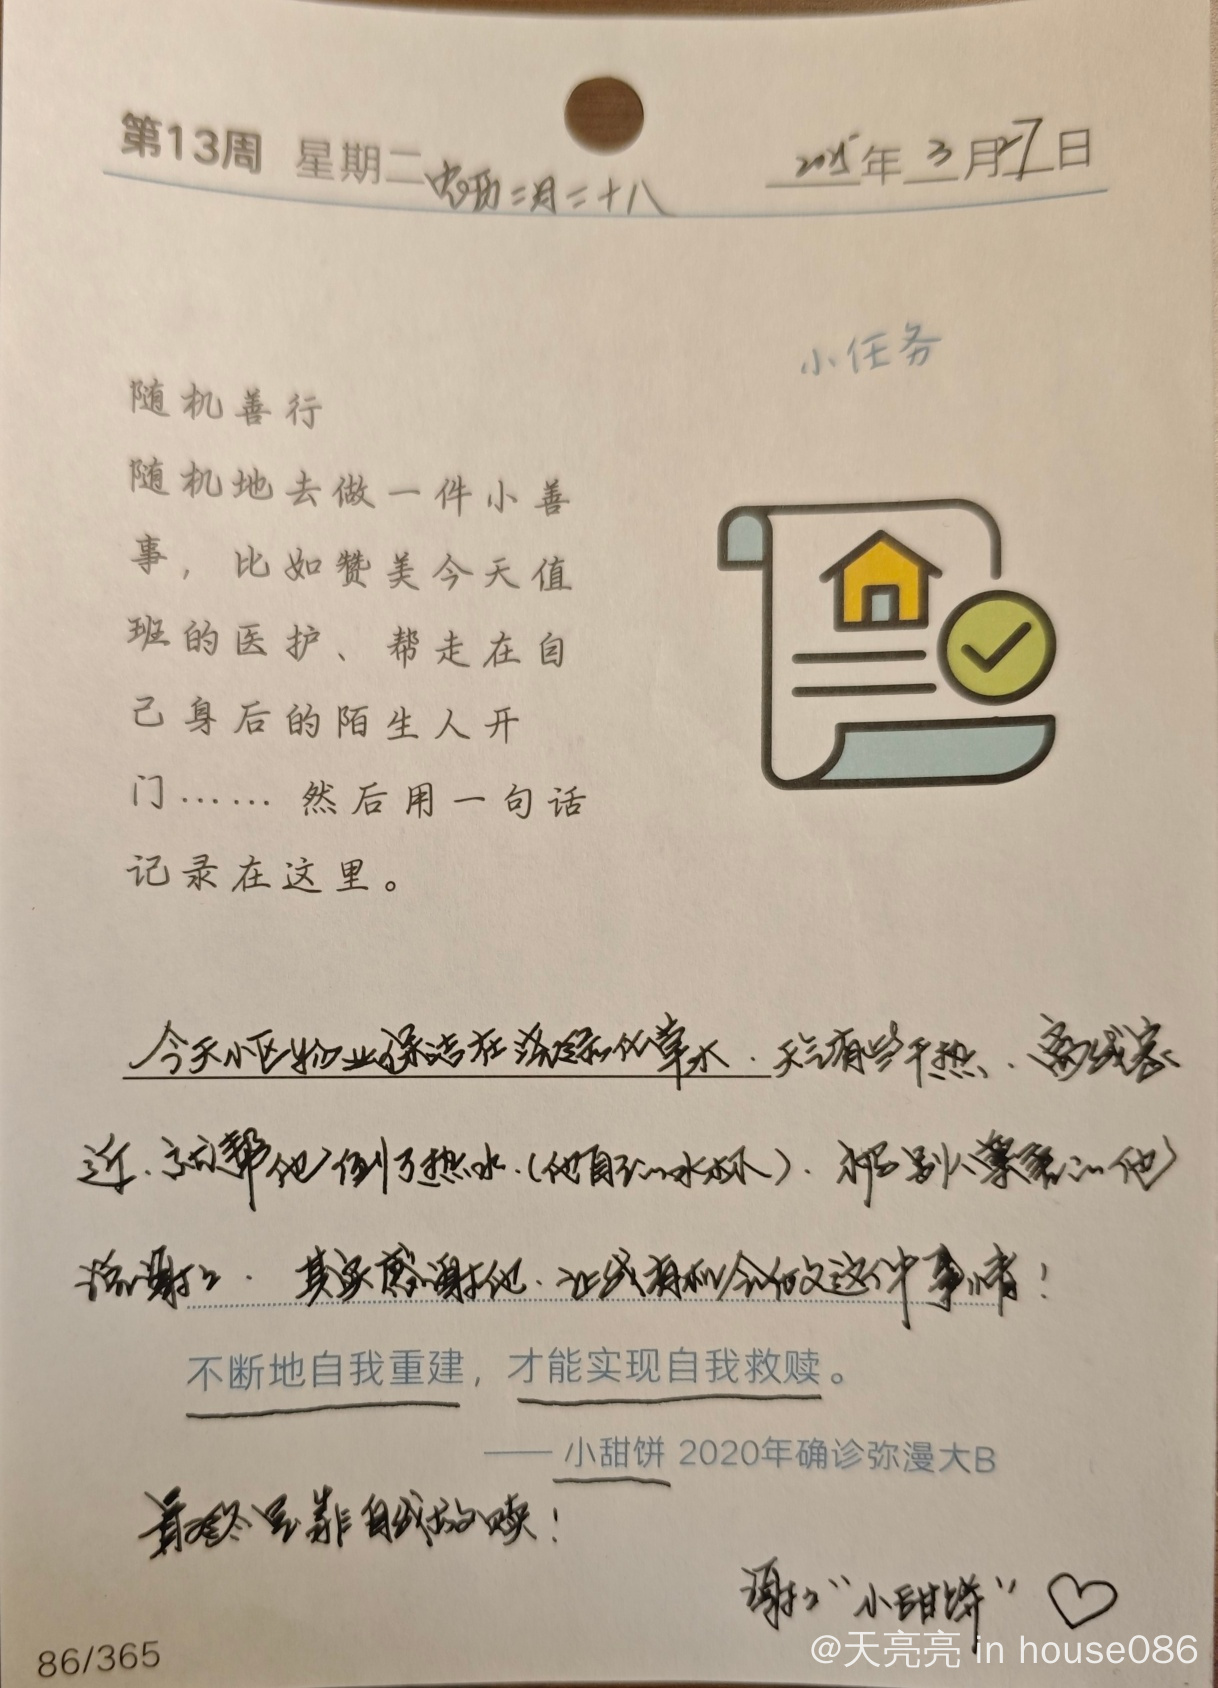 第13周 星期二 农历二月二十八 2025年3月27日
小任务
随机善行
随机地去做一件小善
事，比如赞美今天值
班的医护、帮走在自
己身后的陌生人开
门……然后用一句话
记录在这里。
今天小区物业保洁在浇绿化草木．天气有些干热．离我家
近．就帮他倒了热水．（他自己的水杯）．
谢谢． 其实感谢他．让我有机会做这件事情！
不断地自我重建，才能实现自我救赎。
—— 小甜饼 2020年确诊弥漫大B
最终是靠自我救赎！
谢谢“小甜饼”
86/365
@天亮亮 in house086